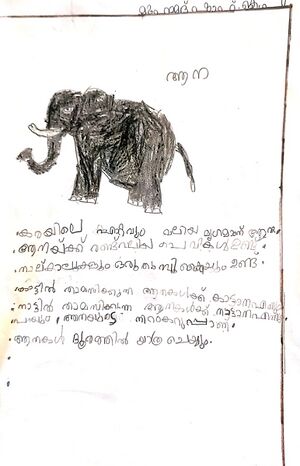 ആന
കരയിലെ ഏറ്റവും വലിയ മൃഗമാണ് ആന.
ആനയ്ക്ക് രണ്ട് വലിയ ചെവികൾ ഉണ്ട്
നാല്കാലുകളും ഒരു തുമ്പിക്കൈയും ഉണ്ട്.
കാട്ടിൽ താമസിക്കുന്ന ആനകൾക്ക് കാട്ടാന
നാട്ടിൽ താമസിക്കുന്ന ആനകൾക്ക് നാട്ടാന
പറയും ആനയുടെ നിറം കറുപ്പാണ്.
ആനകൾ കൂട്ടത്തിൽ യാത്ര ചെയ്യും.